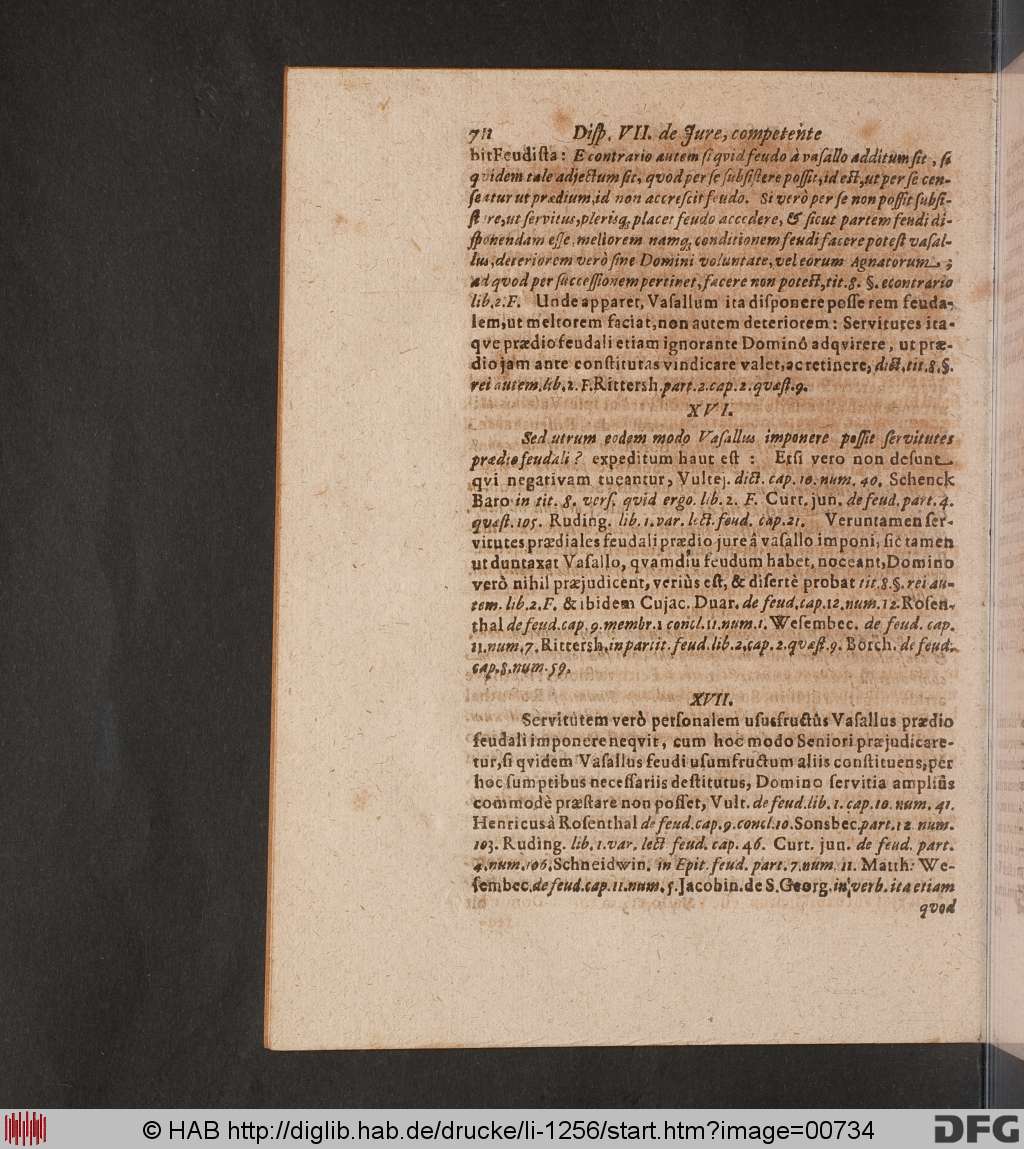 Diſp. VII. de Jure, competente
bit Feudiſta: E contrario autem ſi qvid feudo à vaſallo additum ſit, ſi
qvidem tale adjectum ſit, qvod per ſe ſubſiſtere poſſit, id eſt, ut per ſe cen-
ſeatur ut prædium, id non accreſcit feudo. Si verò per ſe non poſſit ſubſi-
ſtere, ut ſervitus, plerisq; placet feudo accedere, & ſicut partem feudi di-
ſponendam eſſe, meliorem namq; conditionem feudi facere poteſt vaſal-
lus, deteriorem verò ſine Domini voluntate, vel eorum Agnatorum,
ad qvod per ſucceſſionem pertinet, facere non poteſt, tit. 8. §. econtrario
lib. 2. F. Unde apparet, Vaſallum ita diſponere poſſe rem feuda-
lem, ut meliorem faciat, non autem deteriorem: Servitutes ita-
qve prædio feudali etiam ignorante Dominô adqvirere, ut præ-
dio jam ante conſtitutas vindicare valet, ac retinere, dict. tit. 8. §.
rei autem. lib. 2. F. Rittersh. part. 2. cap. 2. quæſt. 9.
XVI.
Sed utrum eodem modo Vaſallus imponere poſſit ſervitutes
prædio feudali? expeditum haut eſt: Etſi vero non deſunt
qvi negativam tueantur, Vultej. dict. cap. 10. num. 40. Schenck
Baro in tit. 8. verſ. quid ergo. lib. 2. F. Curt. jun. de feud. part. 4.
quæſt. 105. Ruding. lib. 1. var. lect. feud. cap. 21. Veruntamen ſer-
vitutes prædiales feudali prædio jure â vaſallo imponi, ſic tamen
ut duntaxat Vaſallo, qvamdiu feudum habet, noceant, Domino
verò nihil præjudicent, veriùs eſt, & diſertè probat tit. 8. §. rei au-
tem. lib. 2. F. & ibidem Cujac. Duar. de feud. cap. 12. num. 12. Roſen-
thal de feud. cap. 9. membr. 1 concl. 11. num. 1. Weſembec. de feud. cap.
11. num. 7. Rittersh. in partit. feud. lib. 2. cap. 2. quæſt. 9. Borch. de feud.
cap. 8. num. 59.
XVII.
Servitutem verò perſonalem uſusfructûs Vaſallus prædio
feudali imponere neqvit, cum hoc modo Seniori præjudicare-
tur, ſi qvidem Vaſallus feudi uſumfructum aliis conſtituens, per
hoc ſumptibus neceſſariis deſtitutus, Domino ſervitia ampliûs
commodè præſtare non poſſet, Vult. de feud. lib. 1. cap. 10. num. 41.
Henricus à Roſenthal de feud. cap. 9. concl. 10. Sonsbec. part. 12 num.
103. Ruding. lib. 1. var. lect feud. cap. 46. Curt. jun. de feud. part.
4. num. 106. Schneidwin. in Epit. feud. part. 7. num. 11. Matth. We-
ſembec. de feud. cap. 11. num. 5. Jacobin. de S. Georg. in verb. ita etiam
qvod
© HAB http://diglib.hab.de/drucke/li-1256/start.htm?image=00734
DFG